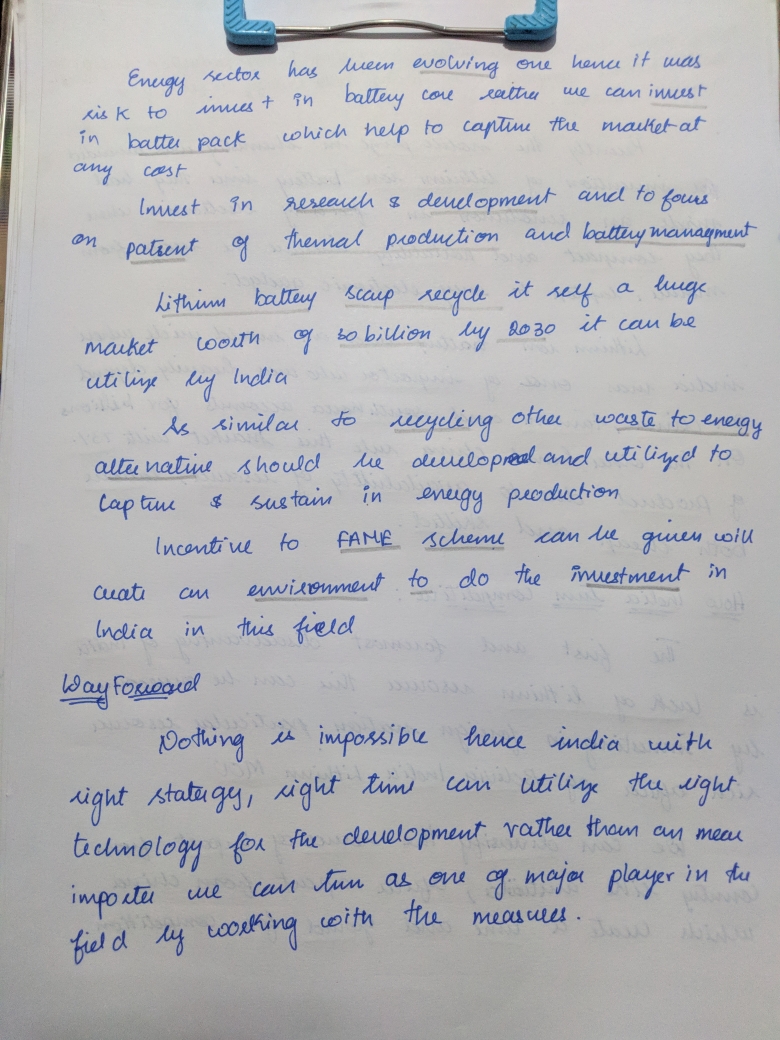 Energy sector has been evolving one hence it was
risk to invest in battery core rather we can invest
in batter pack which help to capture the market at
any cost
Invest in research & development and to focus
on patent of thermal production and battery managment
Lithium battery scarp recycle it self a huge
market worth of 30 billion by 2030 it can be
utilize by India
As similar to recycling other waste to energy
alternative should be developed and utilized to
capture & sustain in energy production
Incentive to FAME scheme can be given will
create an environment to do the investment in
India in this field
Way Forward
Nothing is impossible hence india with
right statergy, right time can utilize the right
technology for the development rather than an mere
importer we can turn as one of major player in the
field by working with the measures.